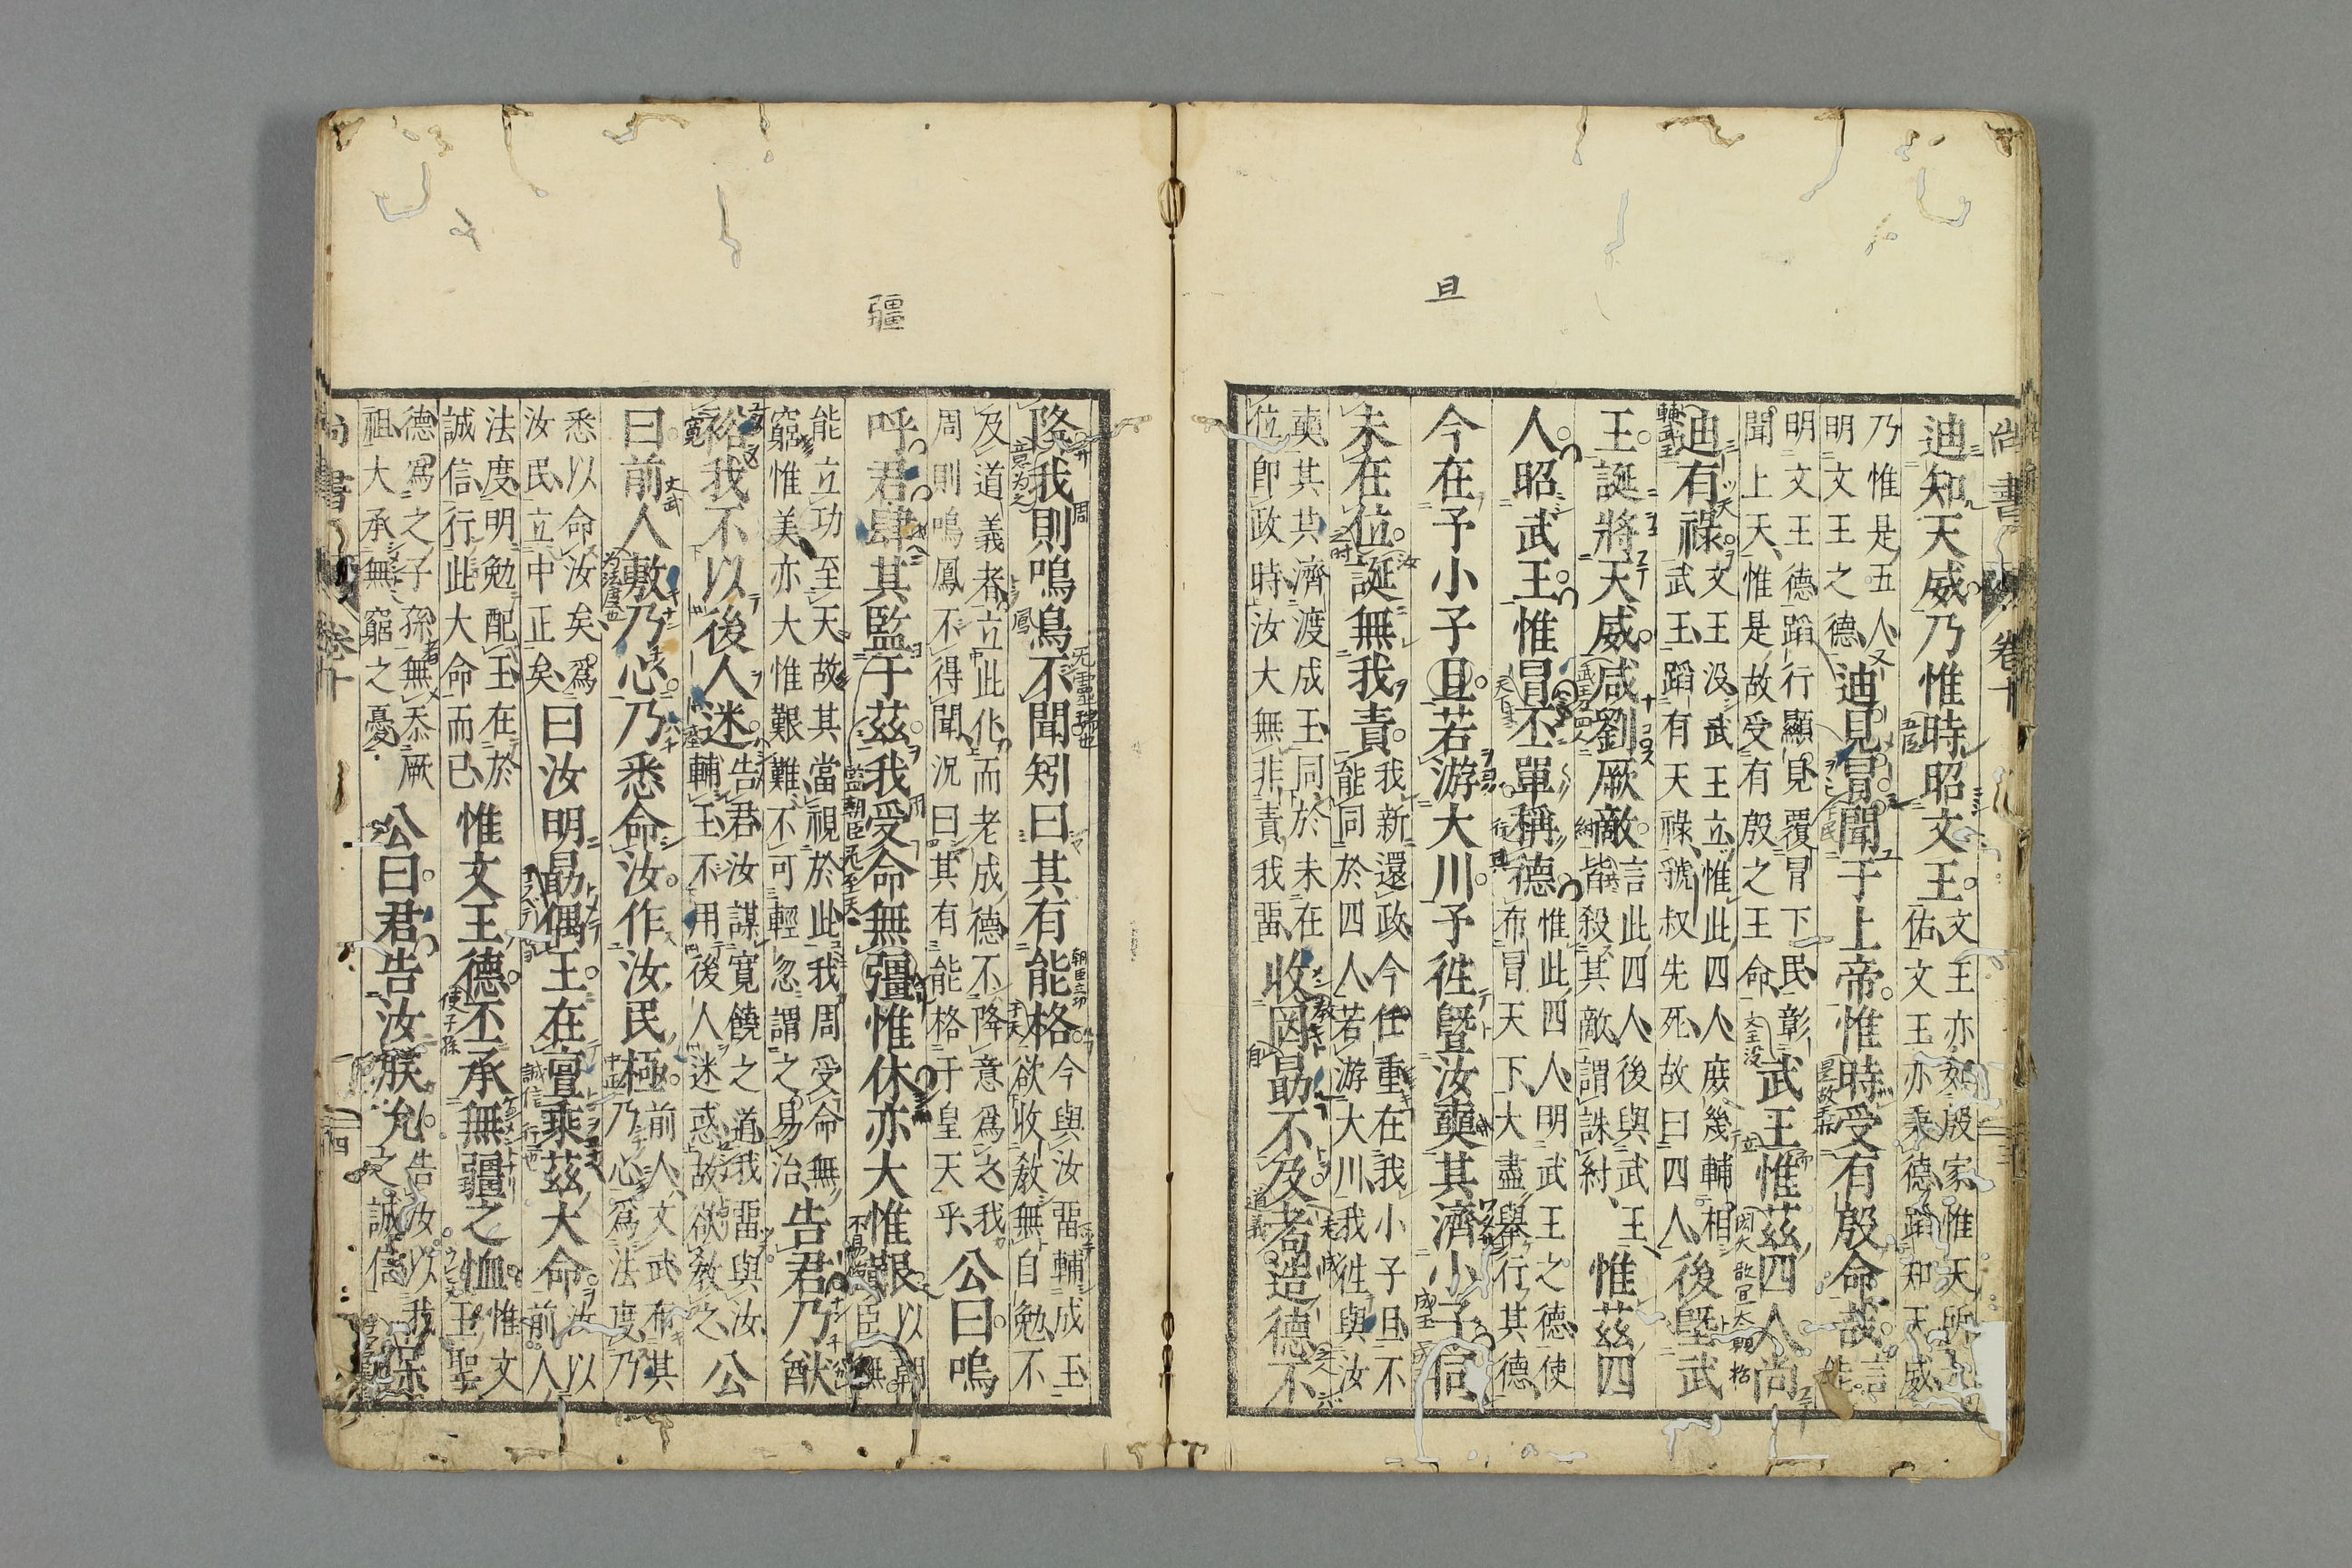 旦
尚書 卷十
迪知天威乃惟時昭文王
文王亦如殷家惟天所
佑文王亦秉德蹈知天威
乃惟是五人
明文王之德
迪見冒聞于上帝惟時受有殷命哉
言
能
明文王德蹈行顯見覆冒下民彰
聞上天惟是故受有殷之王命
武王惟茲四人尚
迪有祿
文王没武王立惟此四人庶幾輔相
武王蹈有天祿虢叔先死故曰四人
後曁武
王誕將天威咸劉厥敵
言此四人後與武王
皆殺其敵謂誅紂
惟茲四
人昭武王惟冒丕單稱德
惟此四人明武王之德使
布冒天下大盡舉行其德
今在予小子旦若游大川予徃曁汝奭其濟小子同
未在位誕無我責
我新還政今任重在我小子旦不
能同於四人若游大川我徃與汝
奭其共濟渡成王同於未在
位即政時汝大無非責我畱
收罔勖不及耇造德不
疆
降我則鳴鳥不聞矧曰其有能格
今與汝畱輔成王
欲收敎無自勉不
及道義者立此化而老成德不降意爲之我
周則鳴鳳不得聞況曰其有能格于皇天乎
公曰嗚
呼君肆其監于茲我受命無彊惟休亦大惟艱
以朝
臣無
能立功至天故其當視於此我周受命無
窮惟美亦大惟艱難不可輕忽謂之易治
告君乃猷
裕我不以後人迷
告君汝謀寬饒之道我畱與汝
輔王不用後人迷惑故欲敎之
公
曰前人敷乃心乃悉命汝作汝民極
前人文武布其
乃心爲法度乃
悉以命汝矣爲
汝民立中正矣
曰汝明勖偶王在亶乘茲大命
汝以
前人
法度明勉配王在於
誠信行此大命而已
惟文王德丕承無疆之恤
惟文
王聖
德爲之子孫無忝厥
祖大承無窮之憂
公曰君告汝朕允
告汝以我
之誠信
保
尚書 卷十